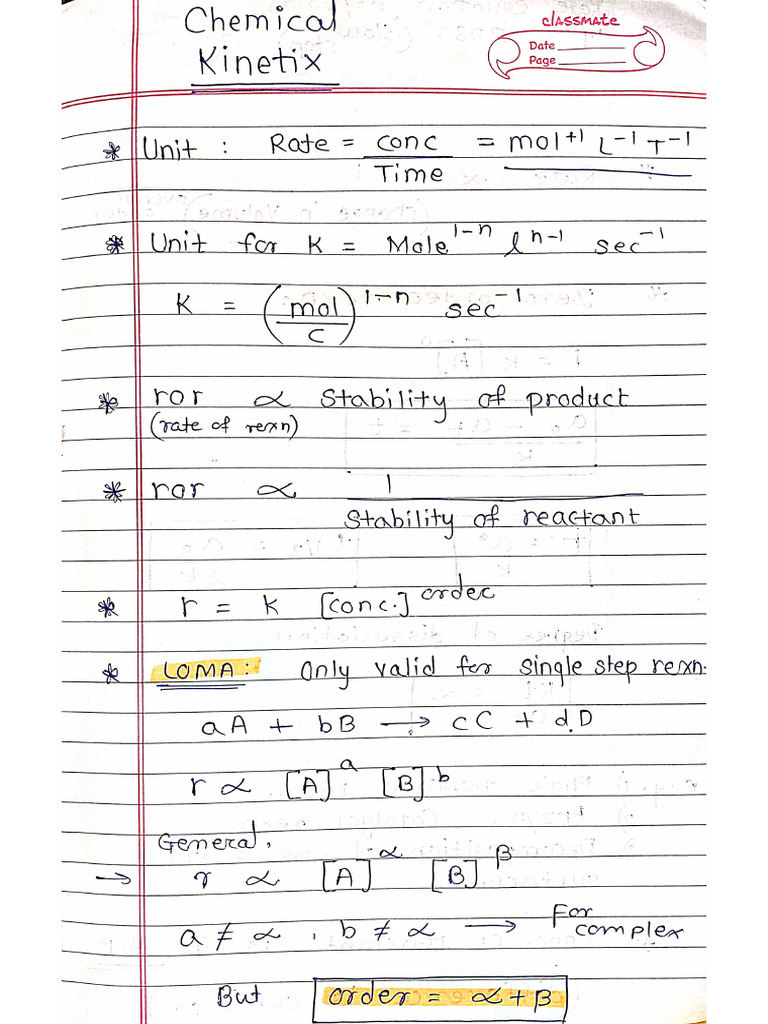 Chemical
Kinetix
classmate
Date
Page
* Unit : Rate = conc / Time = mol⁺¹ L⁻¹ T⁻¹
* Unit for K = Mole¹⁻ⁿ lⁿ⁻¹ sec⁻¹
K = (mol / C)¹⁻ⁿ sec⁻¹
* ror ∝ Stability of product
(rate of rexn)
* ror ∝ 1 / Stability of reactant
* r = k [conc.]ᵒʳᵈᵉʳ
* LOMA: Only valid for single step rexn.
aA + bB → cC + d.D
r ∝ [A]ᵃ [B]ᵇ
General,
→ r ∝ [A]^α [B]^β
a ≠ α , b ≠ α → For complex
But order = α + β